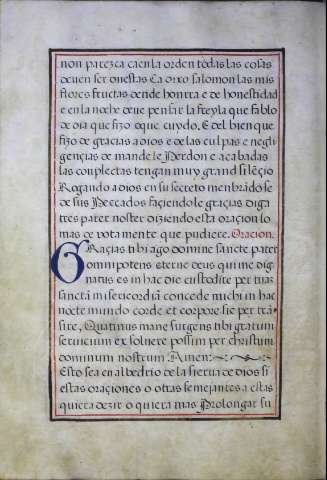 non parezca caen la orden todas las cosas
deuen ser onestas Ca dixo salomon las mis
flores fructas dende honrra e de honestidad
e en la noche deue pensar la freyla que fablo
de dia que fizo e que cuydo. E del bien que
fizo de gracias a dios e de las culpas e negli
gençias demande le Perdon e acabadas
las completas tengan muy grand silẽçio
Rogando a dios en su secreto menbrãdose
de sus Peccados façiendole graçias diga
tres pater noster diziendo esta oraçion lo
mas deuotamente que pudiere. Oracion.
Graçias tibi ago domine sancte pater
omnipotens eterne deus qui me dig
natus es in hac die custodire per tuam
sanctã misericordiã concede michi in hac
nocte mundo corde et corpore sic per trã
sire, Quatinus mane surgens tibi gratum
seruicium exsoluere possim per christum
dominum nostrum Amen:
Esto sea en albedrio de la sierua de dios si
estas oraçiones o otras semejantes a estas
quiera dezir o quiera mas Prolongar su